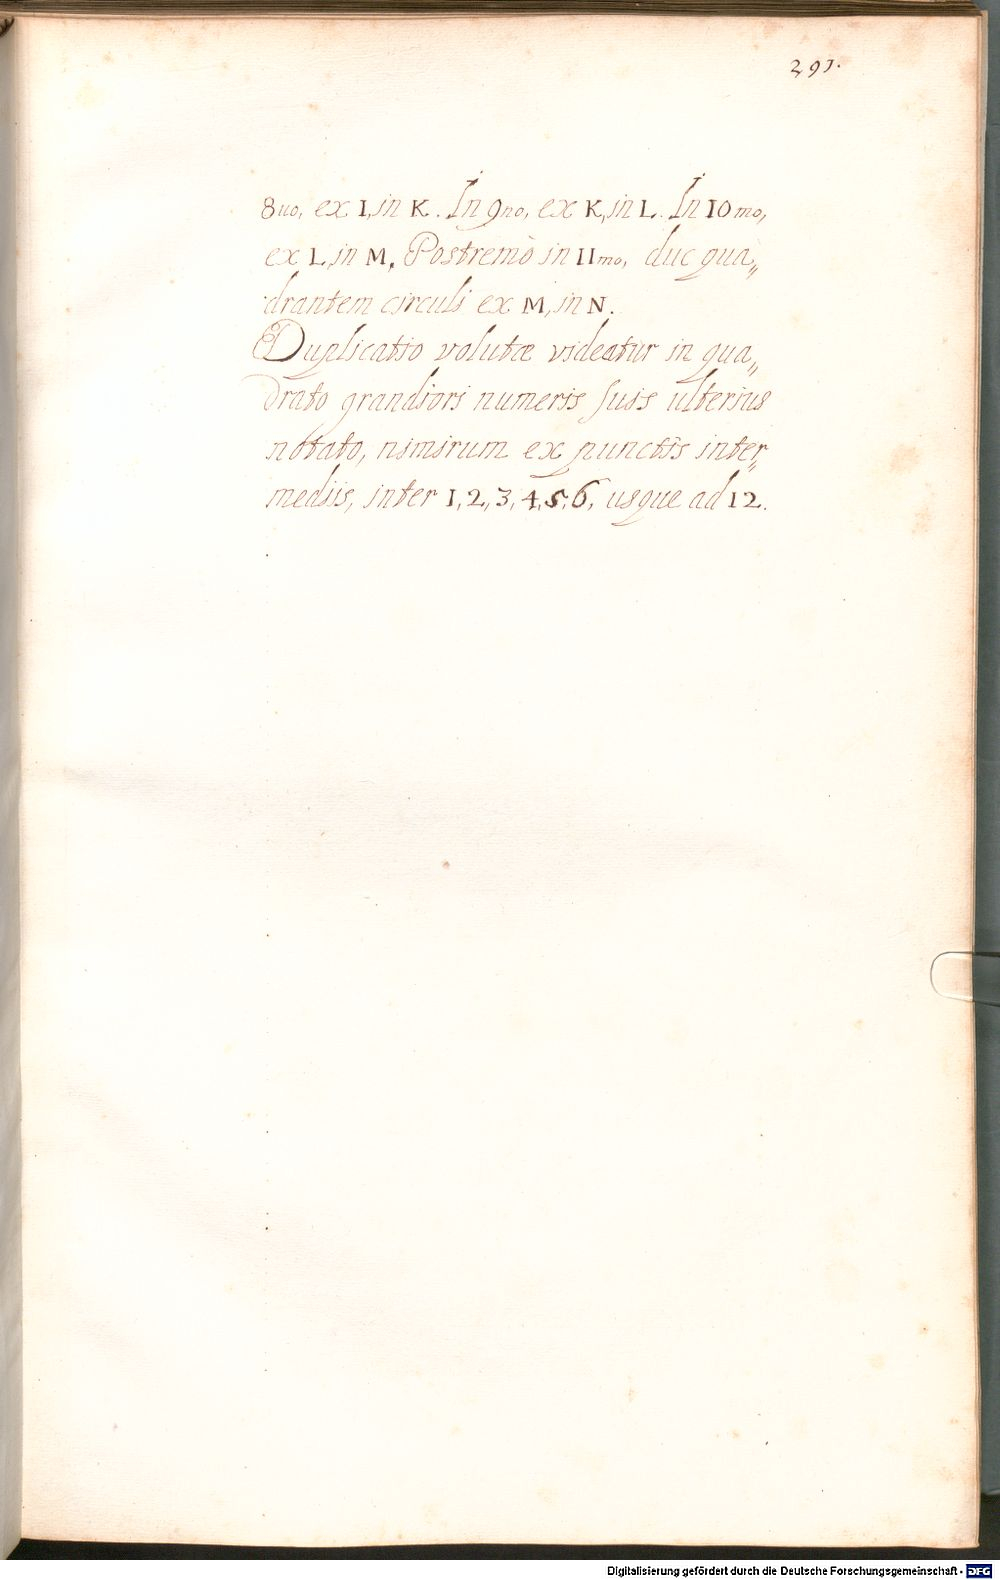 291.
8uo, ex I, in K. In 9no, ex K, in L. In 10mo,
ex L, in M. Postremò in 11mo, duc qua„
drantem circuli ex M, in N.
Duplicatio volutæ videatur in qua„
drato grandiori numeris suis ulterius
notato, nimirum ex punctis inter„
mediis, inter 1, 2, 3, 4, 5, 6, usque ad 12.
Digitalisierung gefördert durch die Deutsche Forschungsgemeinschaft - DFG